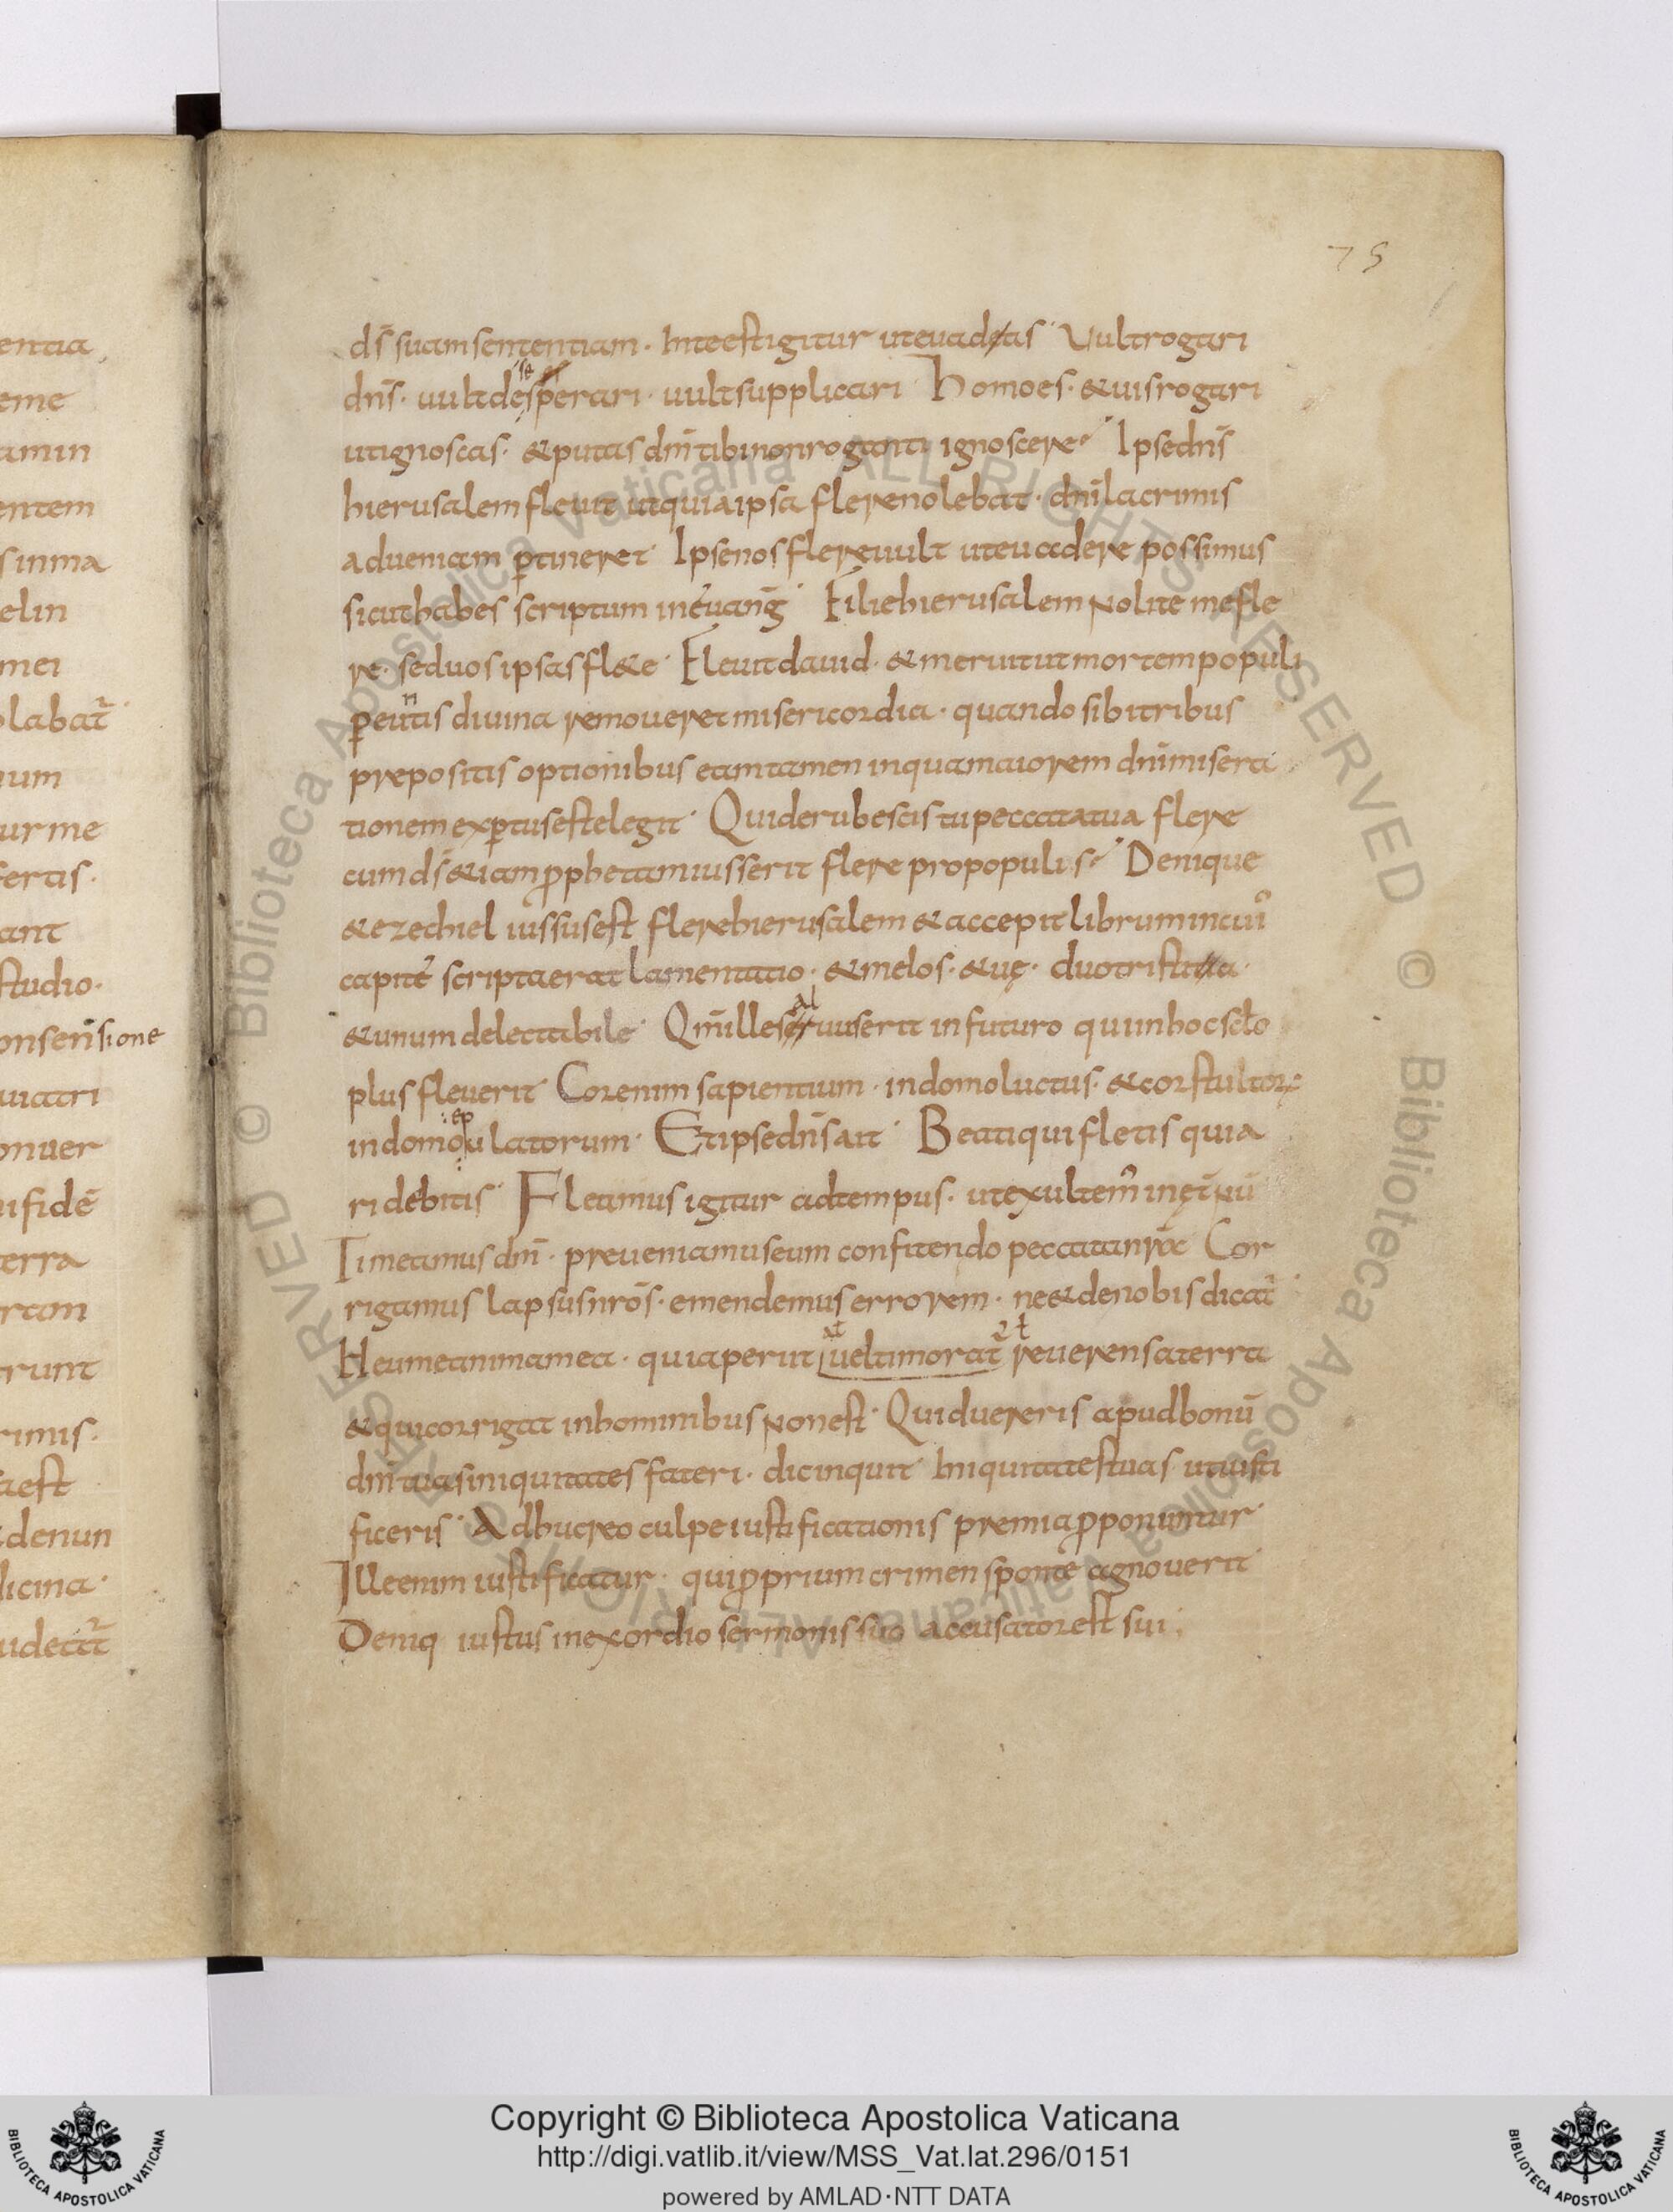 75
ds̄ suam sententiam · Inte est igitur ut euadeas · Uult rogari
dn̄s · uult de se sperari · uult supplicari · Homo es · & uis rogari
ut ignoscas · & putas dm̄ tibi non roganti ignoscere · Ipse dn̄s
hierusalem fleuit ut quia ipsa flere nolebat · dn̄i lacrimis
adueniam ꝑtineret · Ipse nos flere uult ut euadere possimus
sicut habes scriptum in euang̅ · Filie hierusalem nolite me fle
re · sed uos ipsas fl&e · Fleuit dauid · & meruit ut mortem populi
ꝑeuntis diuina remoueret misericordia · quando sibi tribus
prepositis optionibus eam tamen in qua maiorem dn̄i misera
tionem exꝑtus est elegit · Quid erubescis tu peccata tua flere
cum ds̄ &iam ꝓphetam iusserit flere pro populis · Denique
& ezechiel iussus est flere hierusalem & accepit librum in cuiꝰ
capite scripta erat lamentatio · & melos · & uę · duo tristia ·
& unum delectabile · Qm̄ ille saluus erit in futuro qui in hoc sclo
plus fleuerit · Cor enim sapientium · in domo luctus · & cor stultoꝝ
in domo epulatorum · Et ipse dn̄s ait · Beati qui fletis quia
ridebitis · Fleamus igitur ad tempus · ut exultem᾽ in ęt̄nū
Timeamus dm̄ · preueniamus eum confitendo peccata nr̄a Cor
rigamus lapsus nrōs · emendemus errorem · ne & de nobis dicat᾽
Heu me anima mea · quia periit uel timorat᾽ reuerens a terra
& qui corrigat in hominibus non est · Quid uereris apud bonū
dm̄ tuas iniquitates fateri · dic inquit · Iniquitates tuas ut iusti
ficeris · Adhuc reo culpe iustificationis premia ꝓponuntur
Ille enim iustificatur · qui ꝓprium crimen sponte agnouerit
Deniq iustus in exordio sermonis suo accusator est sui
entia
eme
amin
entem
sinma
elin
mei
labat᾽
um
urme
fertis ·
ant
studio ·
onsensione
uiatri
onuer
ifidē
terra
rtam
runt
rimis ·
aest
denun
licina ·
udeat᾽
© Biblioteca Apostolica Vaticana ALL RIGHTS RESERVED © Biblioteca Apostolica Vaticana ALL RIGHTS RESERVED
Copyright © Biblioteca Apostolica Vaticana
http://digi.vatlib.it/view/MSS_Vat.lat.296/0151
powered by AMLAD·NTT DATA
BIBLIOTECA APOSTOLICA VATICANA
BIBLIOTECA APOSTOLICA VATICANA